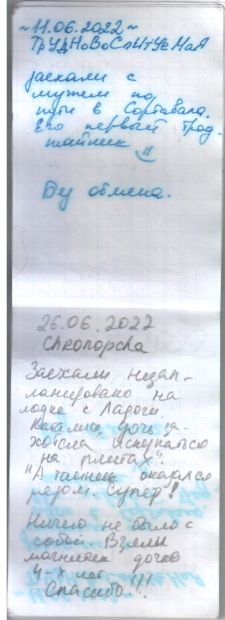 ~11.06.2022~
ТРУДНОВОСПИТУЕМАЯ
Заехали с
мужем по
пути в Сортавала.
Его первый трад.
тайник
Бу обмена.
26.06.2022
Заехали незап-
ланировано на
лодке с Ладоги.
Катались дочь за-
хотела "искупаться
на плитах".
А тайник оказался
рядом. Супер!
Ничего не было с
собой. Взяли
магнитик дочке
4-х лет.
Спасибо!!!